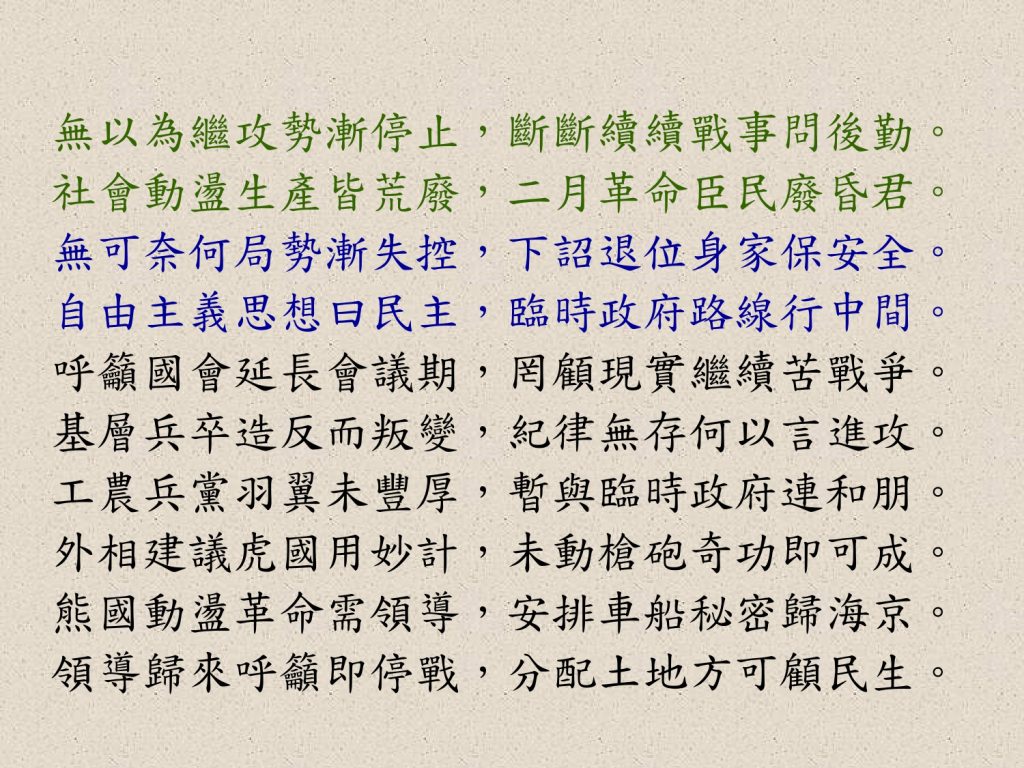 無以為繼攻勢漸停止，斷斷續續戰事問後勤。
社會動盪生產皆荒廢，二月革命臣民廢昏君。
無可奈何局勢漸失控，下詔退位身家保安全。
自由主義思想曰民主，臨時政府路線行中間。
呼籲國會延長會議期，罔顧現實繼續苦戰爭。
基層兵卒造反而叛變，紀律無存何以言進攻。
工農兵黨羽翼未豐厚，暫與臨時政府連和朋。
外相建議虎國用妙計，未動槍砲奇功即可成。
熊國動盪革命需領導，安排車船秘密歸海京。
領導歸來呼籲即停戰，分配土地方可顧民生。